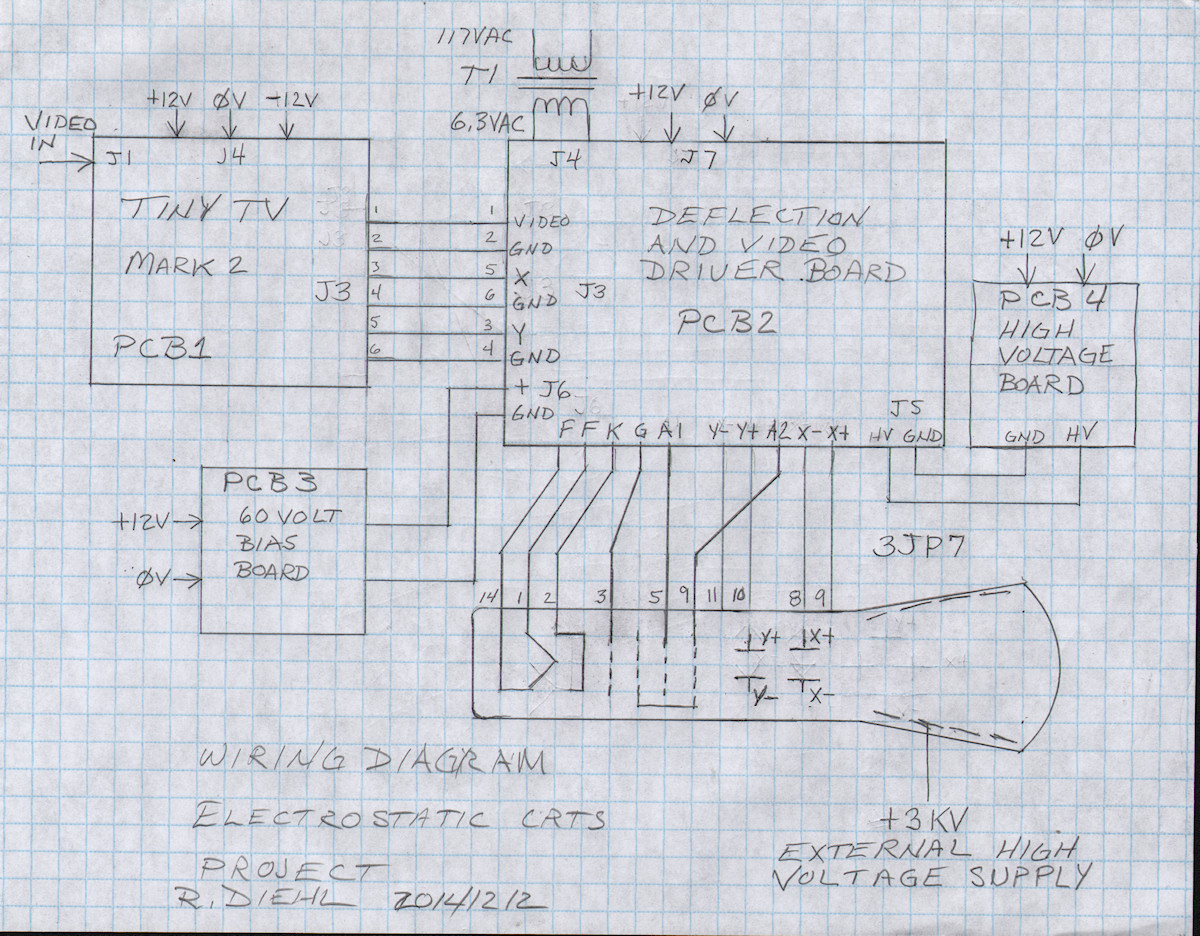 117VAC
T1
6.3VAC
+12V ØV -12V
VIDEO
IN
J1 J4
TINY TV
MARK 2
PCB1
J3
1
2
3
4
5
6
1
2
5
6
3
4
+12V ØV
J4 J7
VIDEO
GND
X
GND
Y
GND
J3
+ J6
GND
DEFLECTION
AND VIDEO
DRIVER BOARD
PCB2
J5
F F K G A1 Y- Y+ A2 X- X+ HV GND
+12V ØV
PCB 4
HIGH
VOLTAGE
BOARD
GND HV
PCB3
60 VOLT
BIAS
BOARD
+12V
ØV
3JP7
14 1 2 3 5 9 11 10 8 9
Y+ X+
Y- X-
+3KV
EXTERNAL HIGH
VOLTAGE SUPPLY
WIRING DIAGRAM
ELECTROSTATIC CRTS
PROJECT
R. DIEHL 2014/12/2